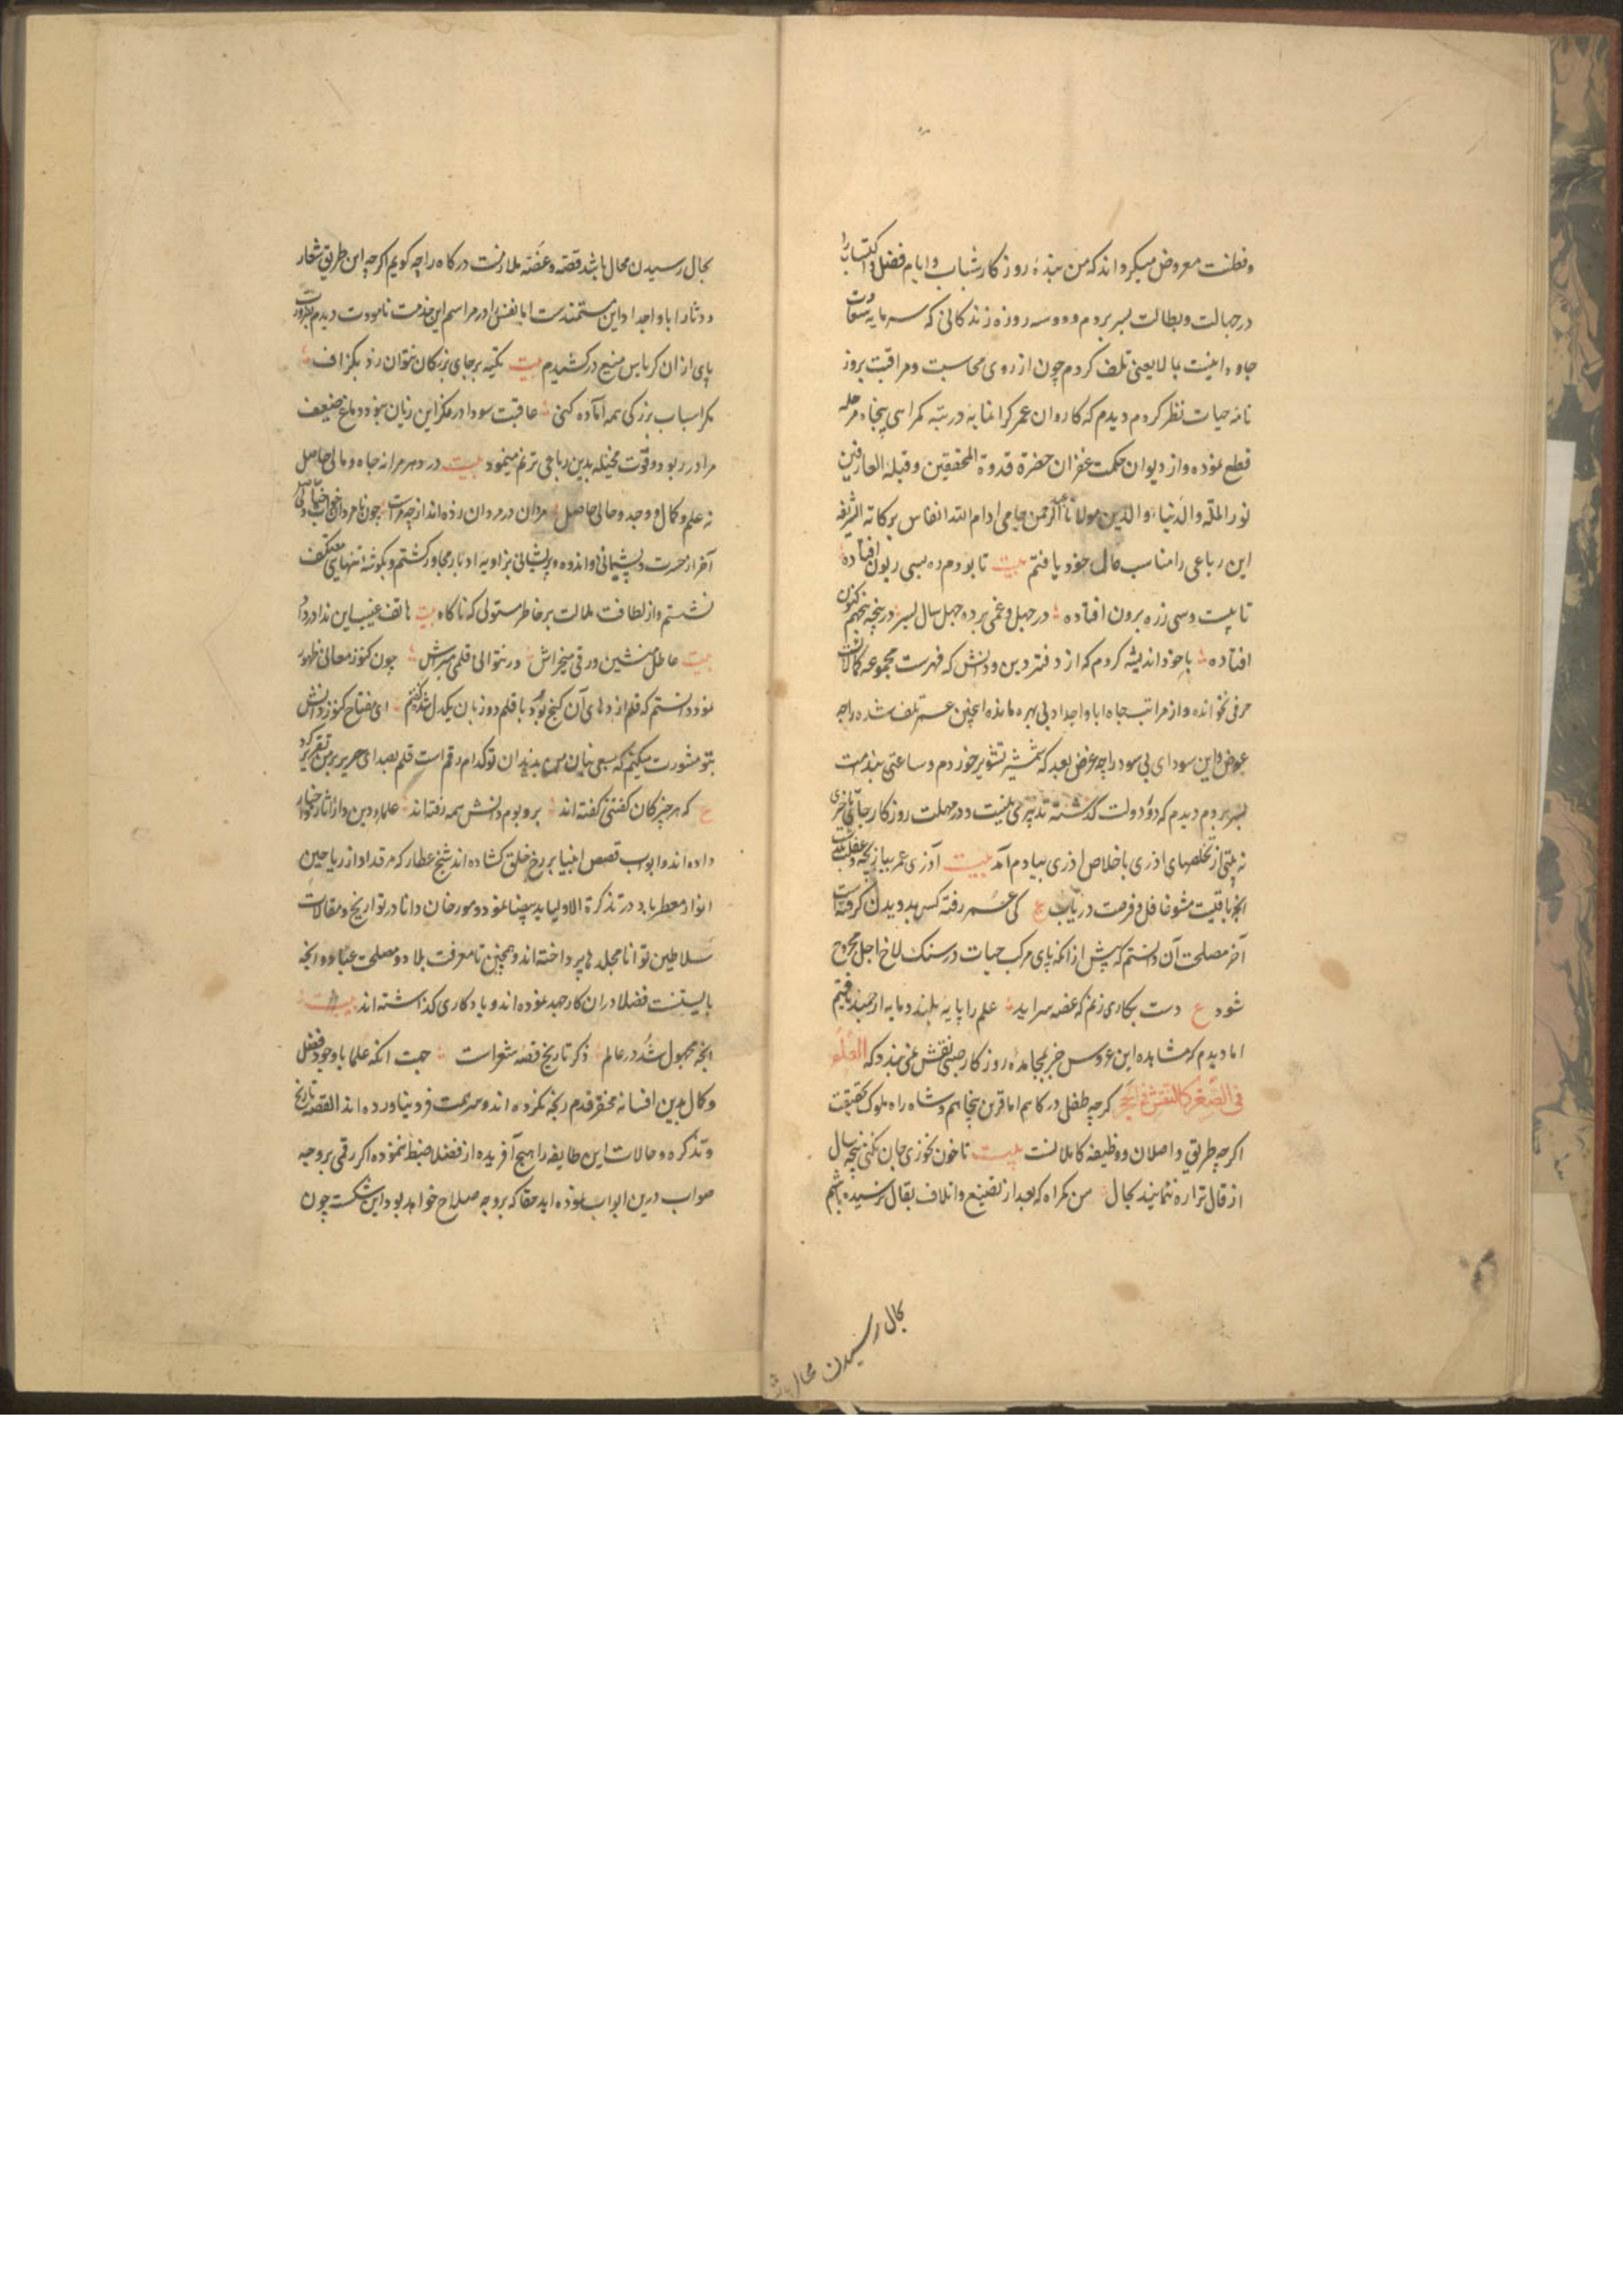 وفطنت معروض میکرداند که من بنده روزکار شباب و ایام فضل و اکتساب را
در جهالت و بطالت بسر بردم و دو سه روزه زندکانی که سرمایه سعادت
جاودانیست بما لا یعنی تلف کردم چون از روی محاسبت و مراقبت بروز
نامه حیات نظر کردم دیدم که کاروان عمر کرانمایه در تیه کمراهی پنجاه مرحله
قطع نموده و از دیوان حکمت غفران حضرة قدوة المحققین و قبلة العارفین
نور الملّة والدنیا و الدین مولانا عبد الرحمن جامی ادام الله انفاس برکاته الشریفه
این رباعی را مناسب حال خود یافتم بیت تا بودم ده بسی زبون افتاده
تا بیست و سی زره برون افتاده در جهل و عمی برده چهل سال بسر در پنجه پنجهم کنون
افتاده با خود اندیشه کردم که از دفتر دین و دانش که فهرست مجموعه کمالاتست
حرفی نخوانده و از مراتب جاه ابا و اجداد بی بهره مانده اینچنین عمر تلف شده را چه
عوض و این سودای بی سود را چه غرض بعد که شمشیر تشویر خوردم و ساعتی بندامت
بسر بردم دیدم که دو دولت کذشته تدبیری نیست و در مهلت روزکار جای تاخیری
نه بیتی از تخلصهای اذری با خلاص اذری بیادم آمد بیت آذری عمر ببازیچه و غفلت مکذران
انچه باقیست مشو غافل و فرصت دریاب ع کی عمر رفته کس بدویدن کرفته است
آخر مصلحت آن دانستم که پیش از انکه پای مرکب حیات در سنک لاخ اجل مجروح
شود ع دست بکاری زنم که غصه سر اید علم را پایه بلند و مایه ارجمند یافتم
اما دیدم که مشاهده این عروس جز بمجاهده روزکار صبی نقش نمی بندد که العلم
فی الصغر کالنقش فی الحجر کرچه طفل درکاهم اما قرین پنجاهم و شاه راه ملوک حقیقت
اکرچه طریق واصلان و وظیفه کاملانست بیت تا خون نخوری جان نکنی پنجه سال
از قال ترا ره ننمایند بحال من کمراه که بعد از تضییع و اتلاف بقال نرسیده باشم
بحال رسیدن محال باشد
بحال رسیدن محال باشد قصه و غصه ملازمت درکاه را چه کویم اکرچه این طریق شعار
و دثار ابا و اجداد این مستمندست اما نفس را در مراسم این خدمت نامودت دیدم بضرورت
پای از ان کرباس منیع درکشیدم بیت تکیه بر جای بزرکان نتوان زد بکزاف
مکر اسباب بزرکی همه آماده کنی عاقبت سودا در مکز این زیان بود و دماغ ضعیف
مرا در ربود و قوت مخیله بدین رباعی ترنم مینمود بیت در دهر مرا نه جاه و مالی حاصل
نه علم و کمال و وجد و حالی حاصل مردان در مردان زده اند از چپ و راست چون نامردان خواب و خیالی حاصل
آخر از حسرت و پشیمانی و اندوه و پریشانی بزاویه ادبار مجاور کشتم و بکوشه تنهایی معتکف
نشستم و از لطافت ملالت بر خاطر مستولی که ناکاه بیت هاتف غیب این ندا در داد
بیت عاطل منشین ورقی میخراش ور نتوانی قلمی میتراش چون کنوز معانی ظهور
نمود دانستم که قلم اژدهای آن کنج بود با قلم دو زبان یکدل شده کفتم ای مفتاح کنوز دانش
بتو مشورت میکنم که بسعی بنان من بدیدان تو کدام رقم است قلم بصدای صریر بر من تقریر کرد
ع که هر چیز کان کفتنی کفته اند بر و بوم دانش همه رفته اند علماء دین داد اثار و اخبار
داده اند و ابواب قصص انبیا بر رخ خلق کشاده اند شیخ عطار که مرقد او از ریاحین
انوار معطر باد در تذکرة الاولیا ید بیضا نمود و مورخان دانا در تواریخ و مقالات
سلاطین توانا مجلدها پرداخته اند و همچنین تا معرفت بلاد و مصلحت عباد و انچه
بایستنست فضلا در ان کار جهد نموده اند و یادکاری کذاشته اند بیت
انچه مجهول شد در عالم ذکر تاریخ قصه شعراست جهت انکه علما با وجود فضل
و کمال بدین افسانه مختصر قدم رنجه نکرده اند و سر همت فرو نیاورده اند القصه تاریخ
و تذکره و حالات این طایفه را هیچ آفریده از فضلا ضبط ننموده اکر رقمی بر وجه
صواب درین ابواب نموده اید حقا که بر وجه صلاح خواهد بود این شکسته چون